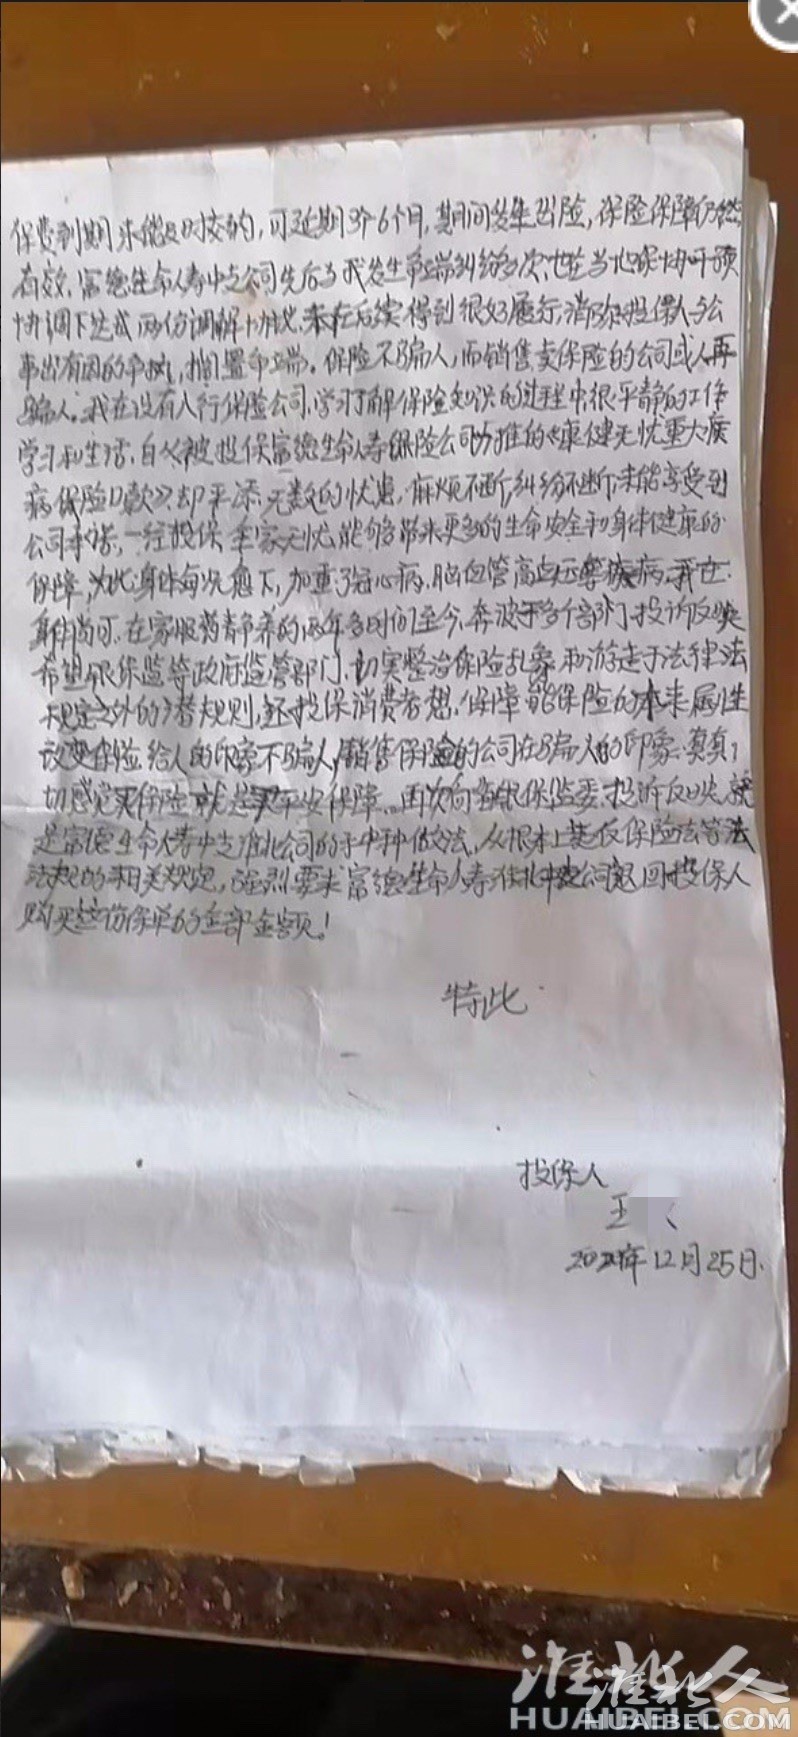 保费到期未能及时交的，可延期3个6个月，期间发生出险，保险保障仍然
有效，富德生命人寿中支公司先后与我发生争端纠纷多次，也在当地保协
协调下达成两份调解协议，未在后续得到很好履行，消弥投保人与公
事出有因的争，搁置争端。保险不骗人，而销售卖保险的公司或人再
骗人。我在没有入行保险公司，学习了解保险知识的过程中，很平静的工作
学习和生活，自从被投保富德生命人寿保险公司力推的《康健无忧重大疾
病保险D款》却平添无数的忧患，麻烦不断，纠纷不断，未能享受到
公司承诺，一经投保，全家无忧，能够带来更多的生命安全和身体健康的
保障，为此，身体每况愈下，加重了冠心病、脑血管高血压等疾病，我在
身体尚可，在家服药静养的两年多时间至今，奔波于多个部门，投诉反映
希望银保监等政府监管部门，切实整治保险乱象和游走于法律法
规定之外的潜规则，还投保消费者想，保障能保险的本来属性
改变保险给人的印象不骗人，销售保险的公司在骗人的印象，真真
切感觉买保险就是买平安保障。再次向银保监委投诉反映，就
是富德生命人寿中支淮北公司的种种做法，从根本上违反保险法等法
法规的相关规定，强烈要求富德生命人寿淮北中支公司退回投保人
购买这份保单的全部金额！
特此
投保人
王
12月25日.
淮北人
HUAIBEI.COM
淮北人
HUAIBEI.COM